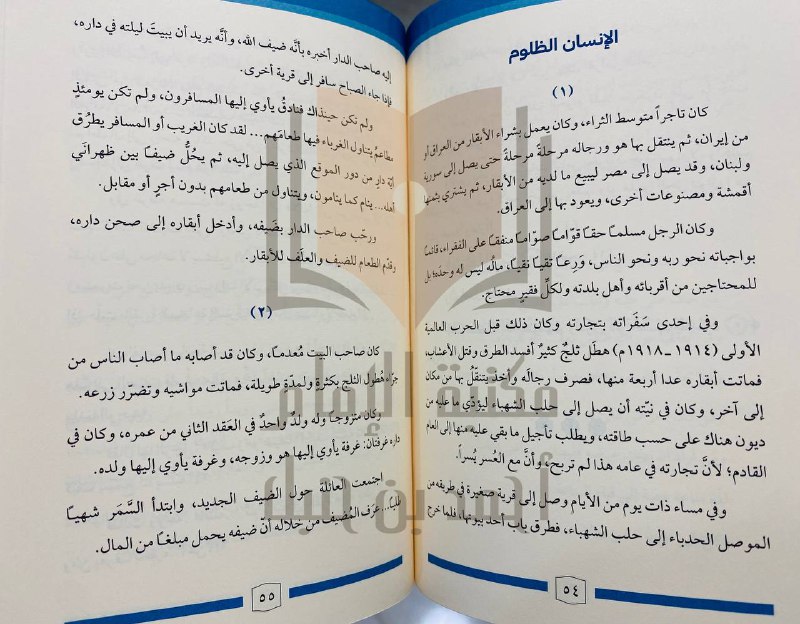 الإنسان الظلوم
(١)
كان تاجراً متوسط الثراء، وكان يعمل بشراء الأبقار من العراق أو
من إيران، ثم ينتقل بها هو ورجاله مرحلةً مرحلةً حتى يصل إلى سورية
ولبنان، وقد يصل إلى مصر ليبيع ما لديه من الأبقار، ثم يشتري بثمنها
أقمشة ومصنوعات أخرى، ويعود بها إلى العراق.
وكان الرجل مسلمـًا حقـًا قوّامـًا صوّامـًا منفقـًا على الفقراء، قائمـًا
بواجباته نحو ربه ونحو الناس، وَرِعـًا تقيـًا نقيـًا، ماله ليس له وحدَه؛ بل
للمحتاجين من أقربائه وأهل بلدته ولكلّ فقيرٍ محتاج.
وفي إحدى سَفَراته بتجارته وكان ذلك قبل الحرب العالمية
الأولى (١٩١٤-١٩١٨م) هطَل ثلجٌ كثيرٌ أفسد الطرق وقتل الأعشاب،
فماتت أبقاره عدا أربعة منها، فصرف رجالَه وأخذ يتنقلُ بها من مكان
إلى آخر، وكان في نيّته أن يصل إلى حلب الشهباء ليؤدّي ما عليه من
ديون هناك على حسب طاقته، ويطلب تأجيل ما بقي عليه منها إلى العام
القادم؛ لأنَّ تجارته في عامه هذا لم تربح، وأنَّ مع العُسر يُسراً.
وفي مساء ذات يوم من الأيام وصل إلى قرية صغيرة في طريقه من
الموصل الحدباء إلى حلب الشهباء، فطرق باب أحد بيوتها، فلما خرج
٥٤
إليه صاحب الدار أخبره بأنَّه ضيف الله، وأنَّه يريد أن يبيتَ ليلته في داره،
فإذا جاء الصباح سافر إلى قرية أخرى.
ولم تكن حينذاك فنادقُ يأوي إليها المسافرون، ولم تكن يومئذٍ
مطاعمُ يتناول الغرباء فيها طعامَهم... لقد كان الغريب أو المسافر يطرُق
أيّة دارٍ من دور الموقع الذي يصل إليه، ثم يحُلُّ ضيفـًا بين ظهراني
أهله... ينام كما ينامون، ويتناول من طعامهم بدون أجرٍ أو مقابل.
ورحّب صاحب الدار بضَيفه، وأدخل أبقاره إلى صحن داره،
وقدّم الطعام للضيف والعلَف للأبقار.
(٢)
كان صاحب البيت مُعدمـًا، وكان قد أصابه ما أصاب الناس من
جرّاء هُطول الثلج بكثرةٍ ولمدّةٍ طويلة، فماتت مواشيه وتضرّر زرعه.
وكان متزوجـًا وله ولدٌ واحدٌ في العَقد الثاني من عمره، وكان في
داره غرفتان: غرفة يأوي إليها هو وزوجه، وغرفة يأوي إليها ولده.
اجتمعت العائلة حول الضيف الجديد، وابتدأ السَّمَر شهيـًا
طليـًا... عرَف المُضيف من خلاله أنّ ضيفه يحمل مبلغـًا من المال.
٥٥
مكتبة الإمام
أحمد بن حنبل